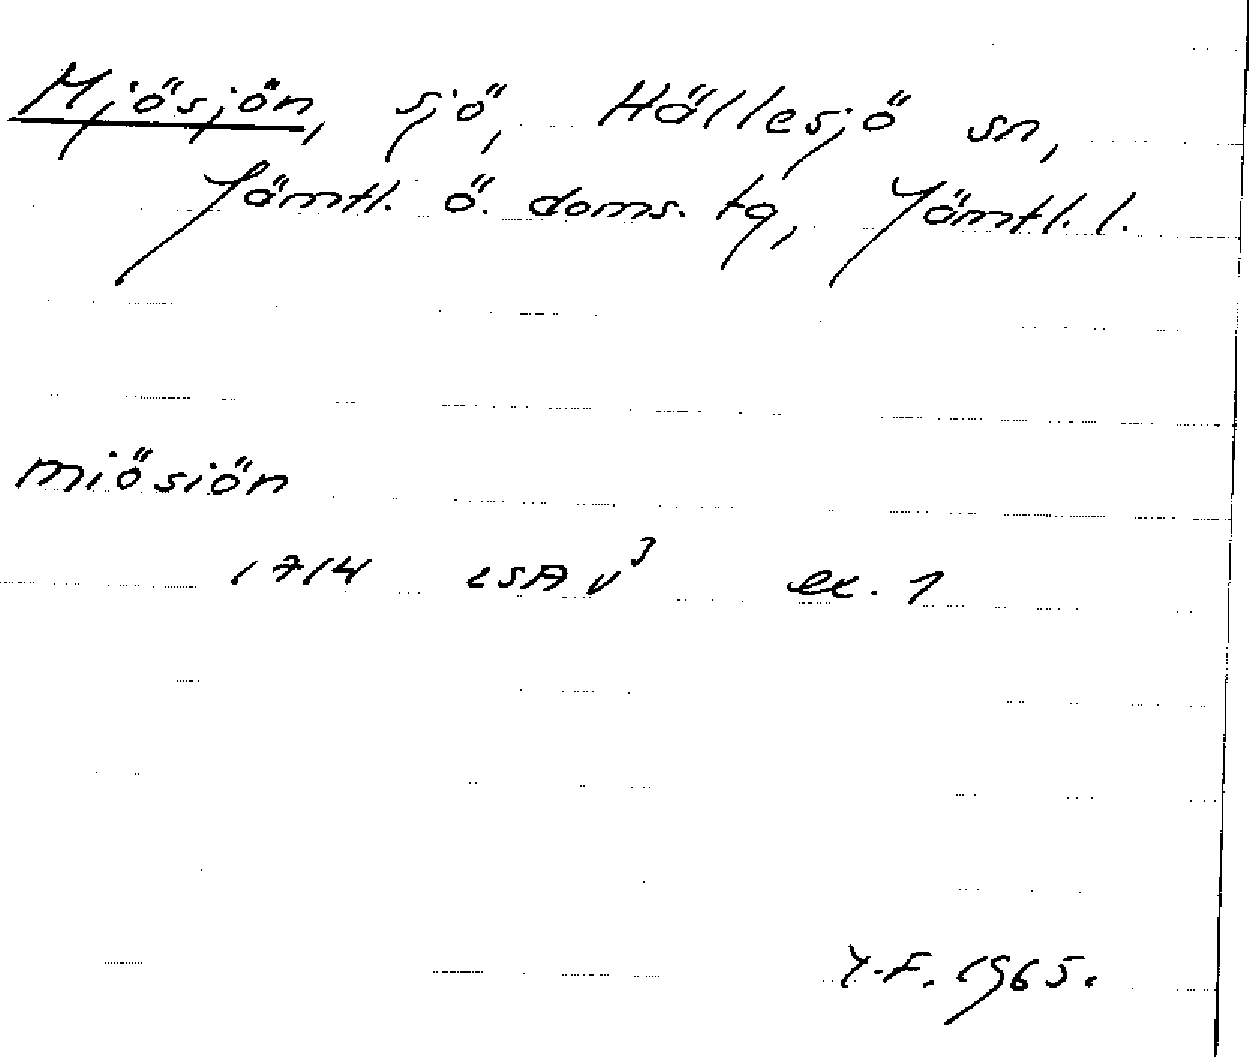 Mjösjön, sjö, Hällesjö sn,
Jämtl. ö. doms. tg, Jämtl. l.
miösiön
1714 LSA V³ ex. 1
Y.F. 1965.